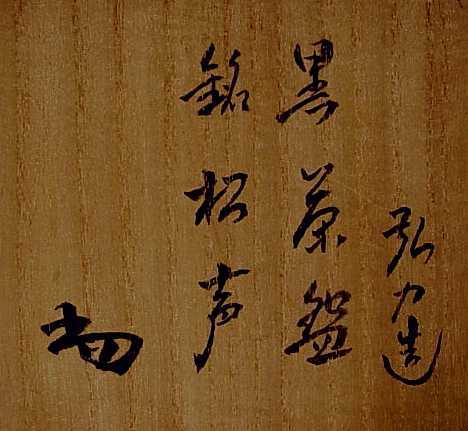 弘力造
黒茶盌
銘松声